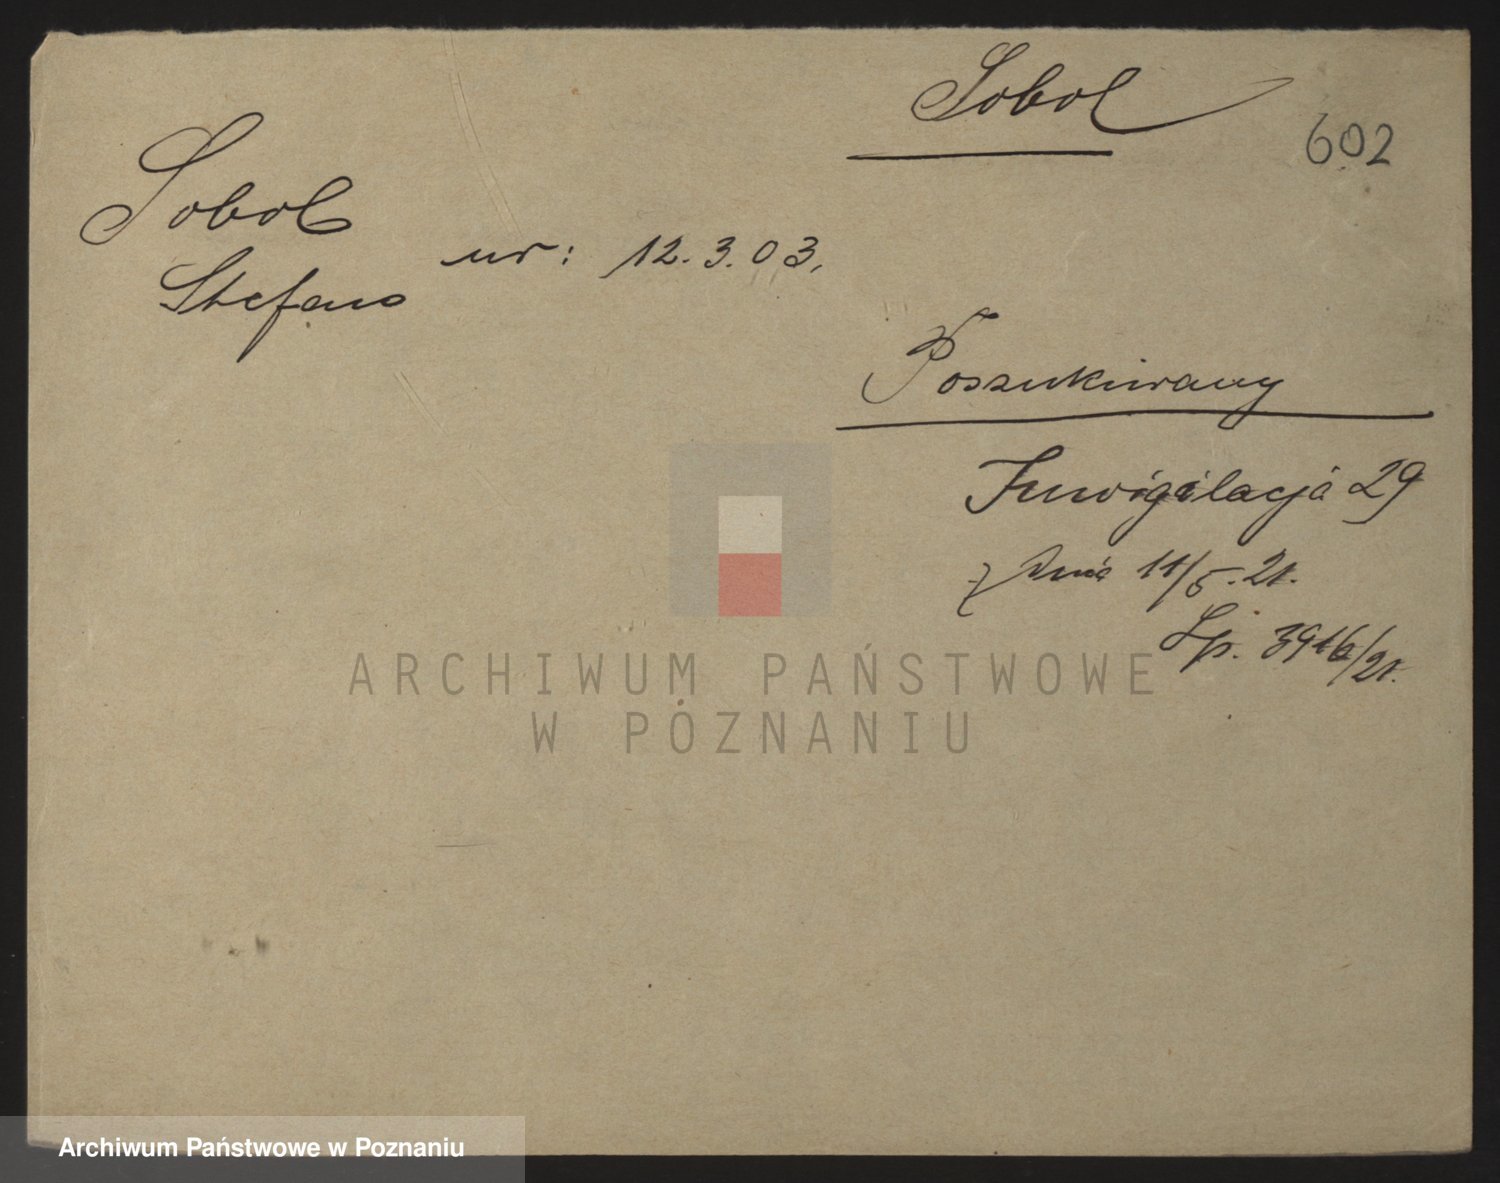 Sobol
602
Sobol
Stefan
ur: 12.3.03.
Poszukiwany
Inwigilacja 29
z dnia 11/5.21.
Lp. 3916/21.
ARCHIWUM PAŃSTWOWE
W POZNANIU
Archiwum Państwowe w Poznaniu